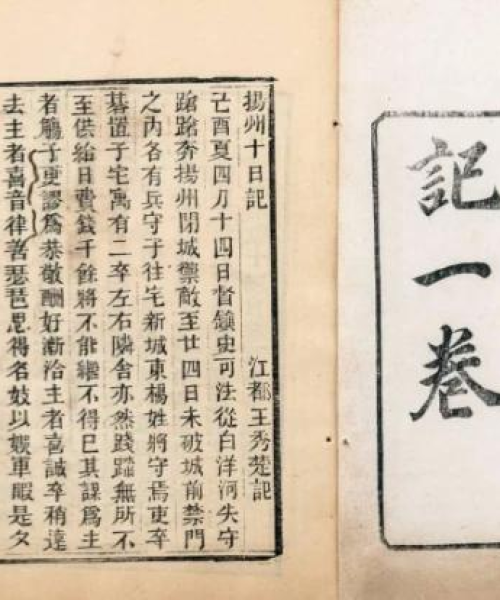 記一卷
揚州十日記 江都王秀楚記
己酉夏四月十四日督鎮史可法從白洋河失守
蹌蹌奔揚州閉城禦敵至廿四日未破城前禁門
之內各有兵守于往宅新城東楊姓將守焉吏卒
碁置于宅寓有二卒左右隣舍亦然踐踏無所不
至供給日費錢千餘將不能繼不得已其謀爲主
者觴子更謬爲恭敬酬好漸洽主者喜誡卒稍遠
去主者喜音律善琵琶思得名妓以娛軍暇是夕